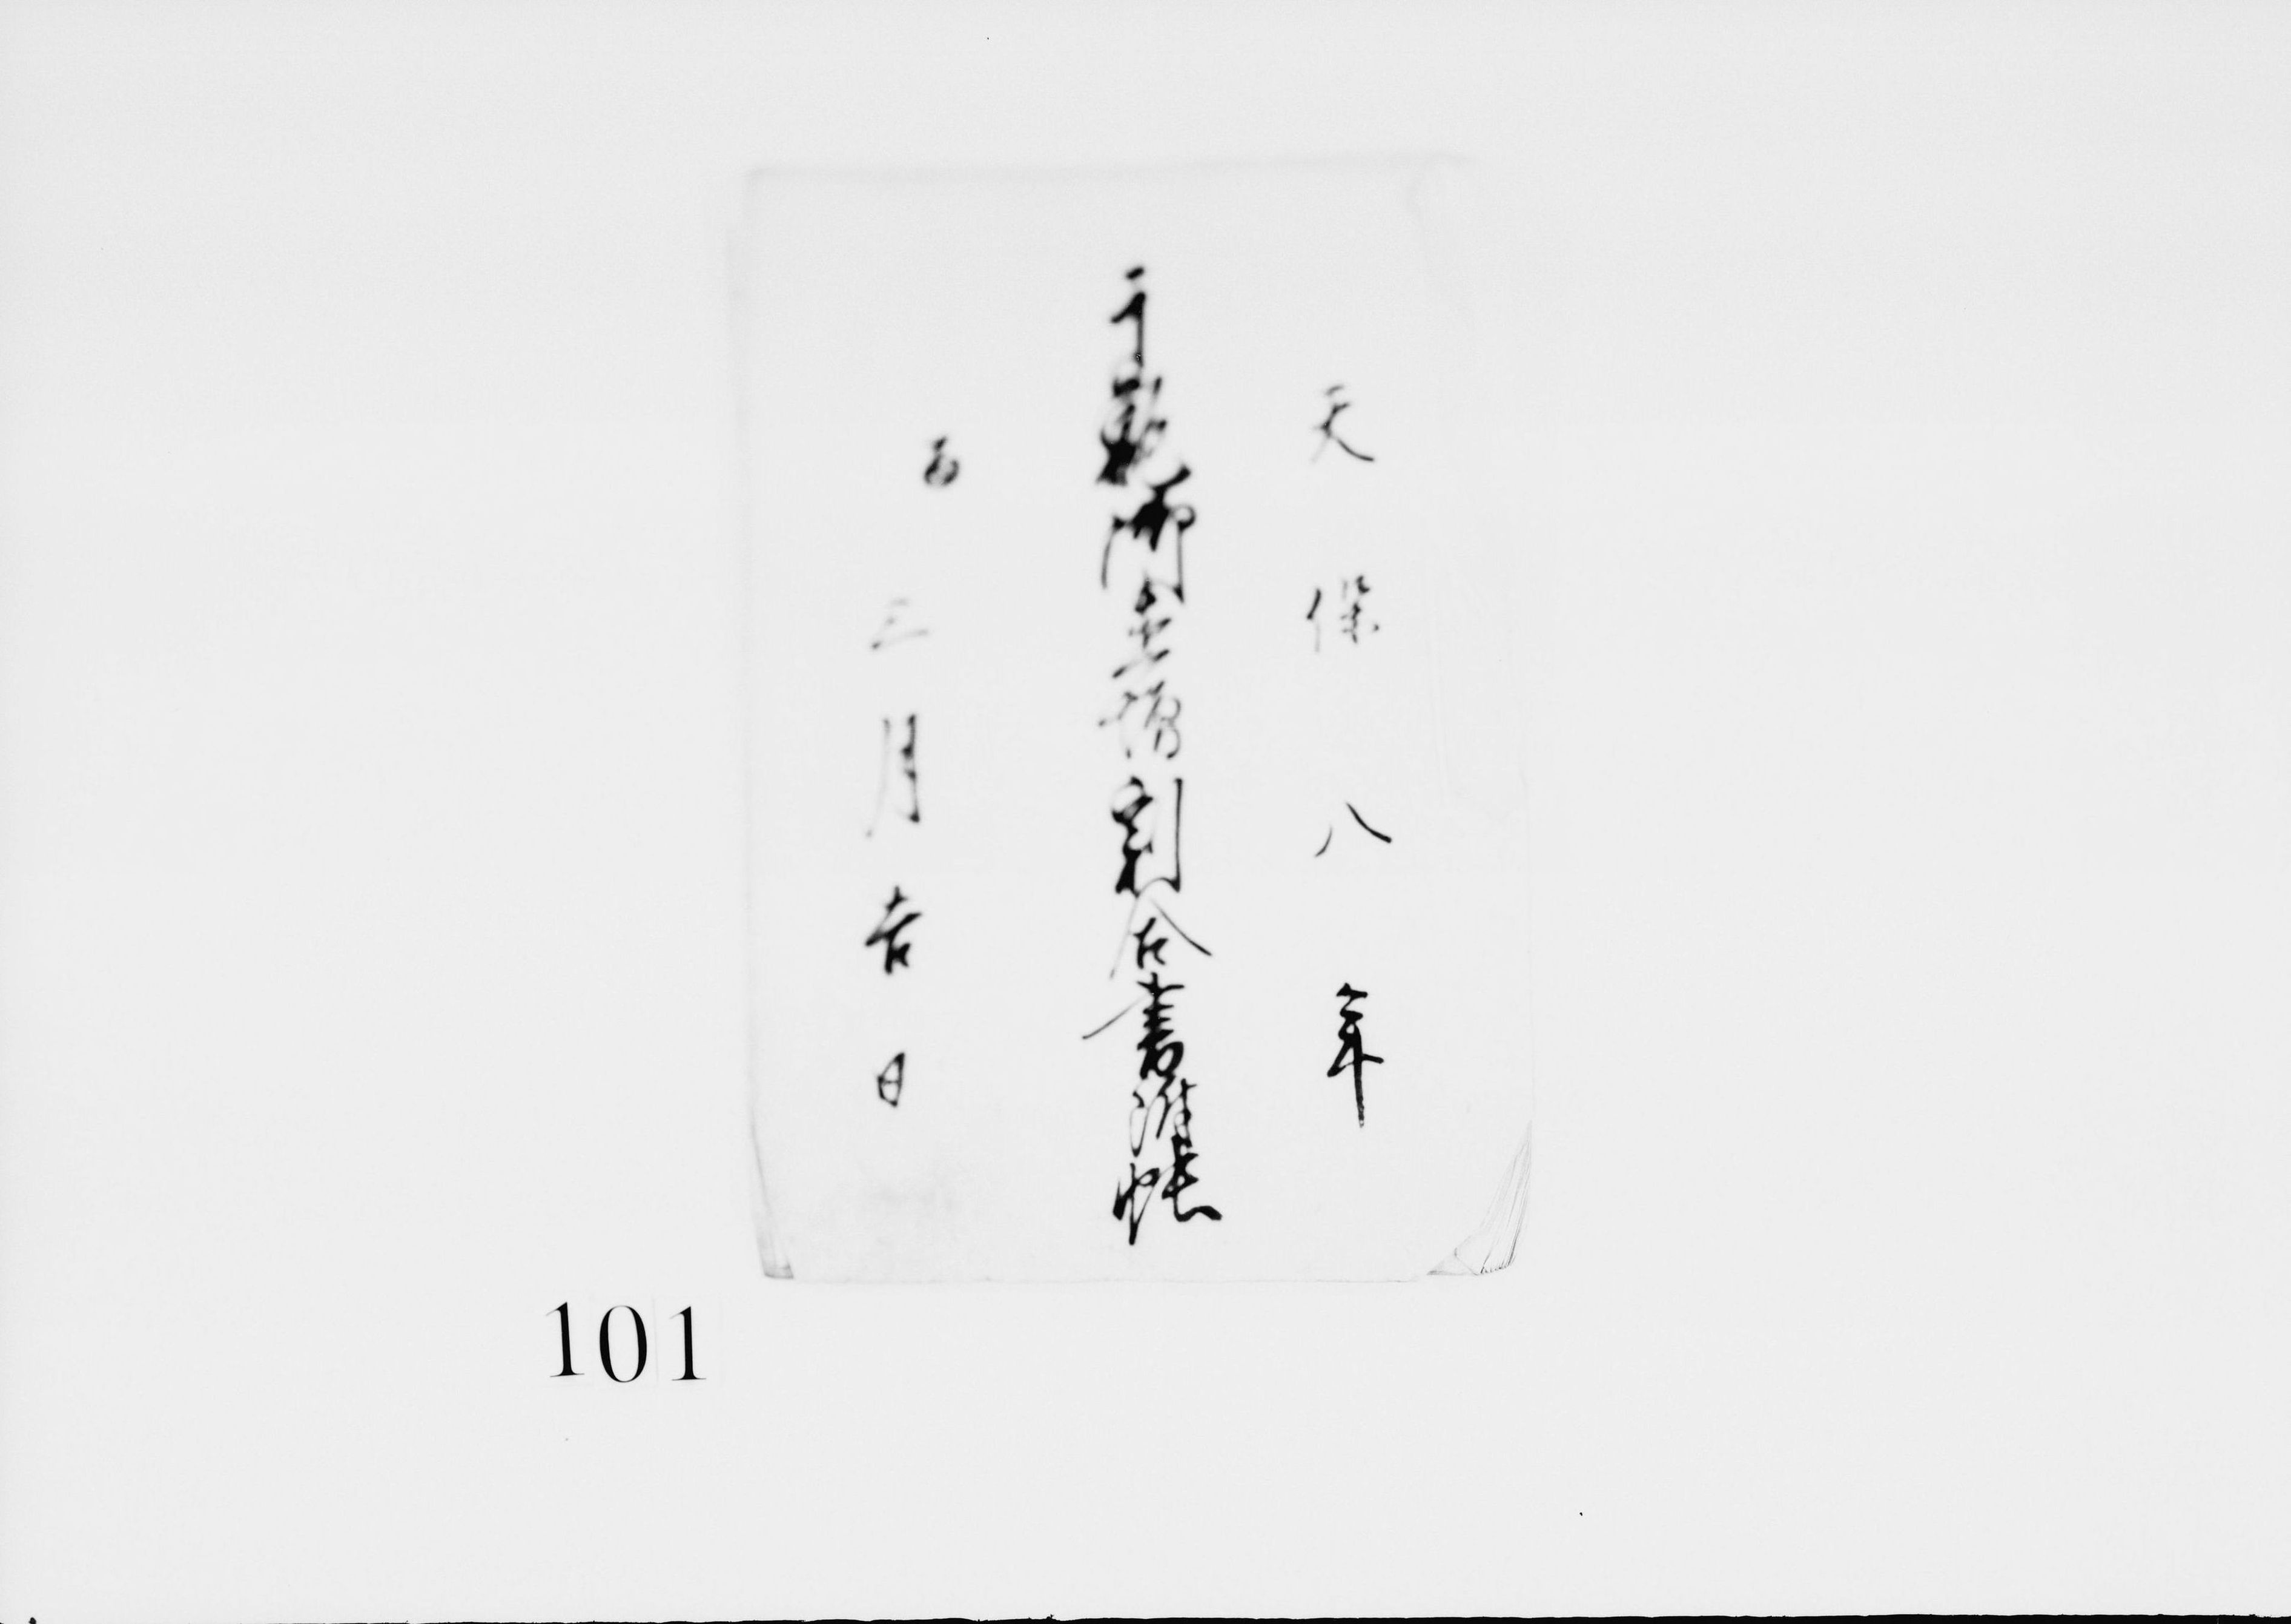 天保八年
干鰯御青增割合書附帳
酉
三月吉日
101